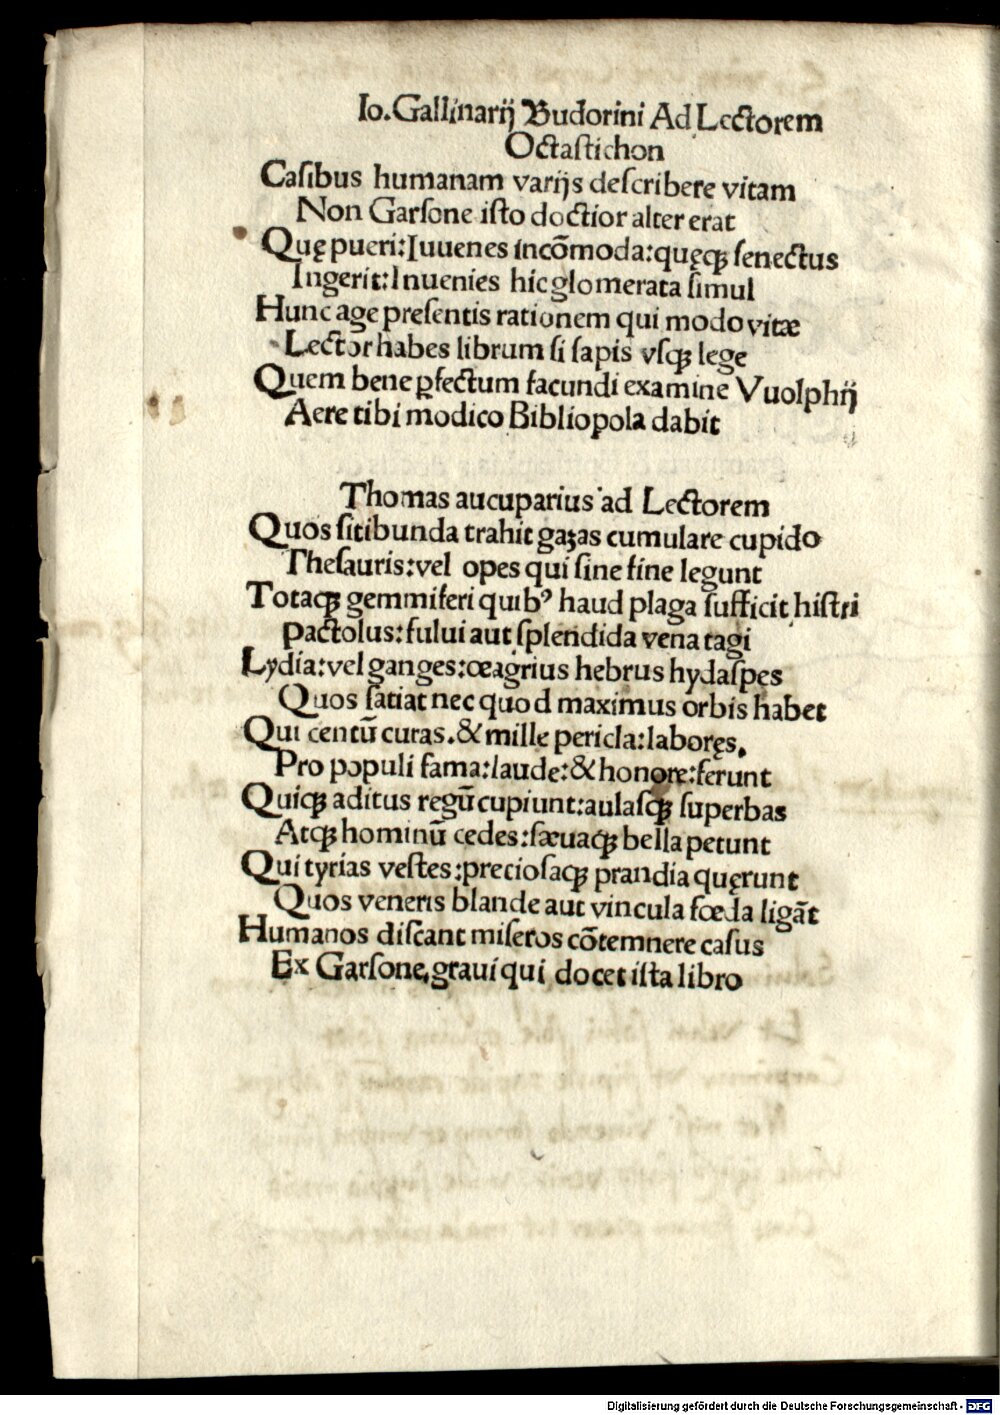 Io. Gallinarij Budorini Ad Lectorem
Octastichon
Caſibus humanam varijs deſcribere vitam
Non Garſone iſto doctior alter erat
Quę pueri: Iuuenes incõmoda: quęqꝫ ſenectus
Ingerit: Inuenies hic glomerata ſimul
Hunc age preſentis rationem qui modo vitæ
Lector habes librum ſi ſapis vſqꝫ lege
Quem bene ꝑfectum facundi examine Vuolphij
Aere tibi modico Bibliopola dabit
Thomas aucuparius ad Lectorem
Quos ſitibunda trahit gaꝫas cumulare cupido
Theſauris: vel opes qui ſine fine legunt
Totaqꝫ gemmiferi quibꝰ haud plaga ſufficit hiſtri
pactolus: fului aut ſplendida vena tagi
Lydia: vel ganges: œagrius hebrus hydaſpes
Quos ſatiat nec quod maximus orbis habet
Qui centũ curas. & mille pericla: laboręs.
Pro populi fama: laude: & honore: ferunt
Quiqꝫ aditus regũ cupiunt: aulaſqꝫ ſuperbas
Atqꝫ hominũ cedes: ſæuaqꝫ bella petunt
Qui tyrias veſtes: precioſaqꝫ prandia quęrunt
Quos veneris blande aut vincula fœda ligãt
Humanos diſcant miſeros cõtemnere caſus
Ex Garſone, graui qui docet iſta libro
Digitalisierung gefördert durch die Deutsche Forschungsgemeinschaft - DFG